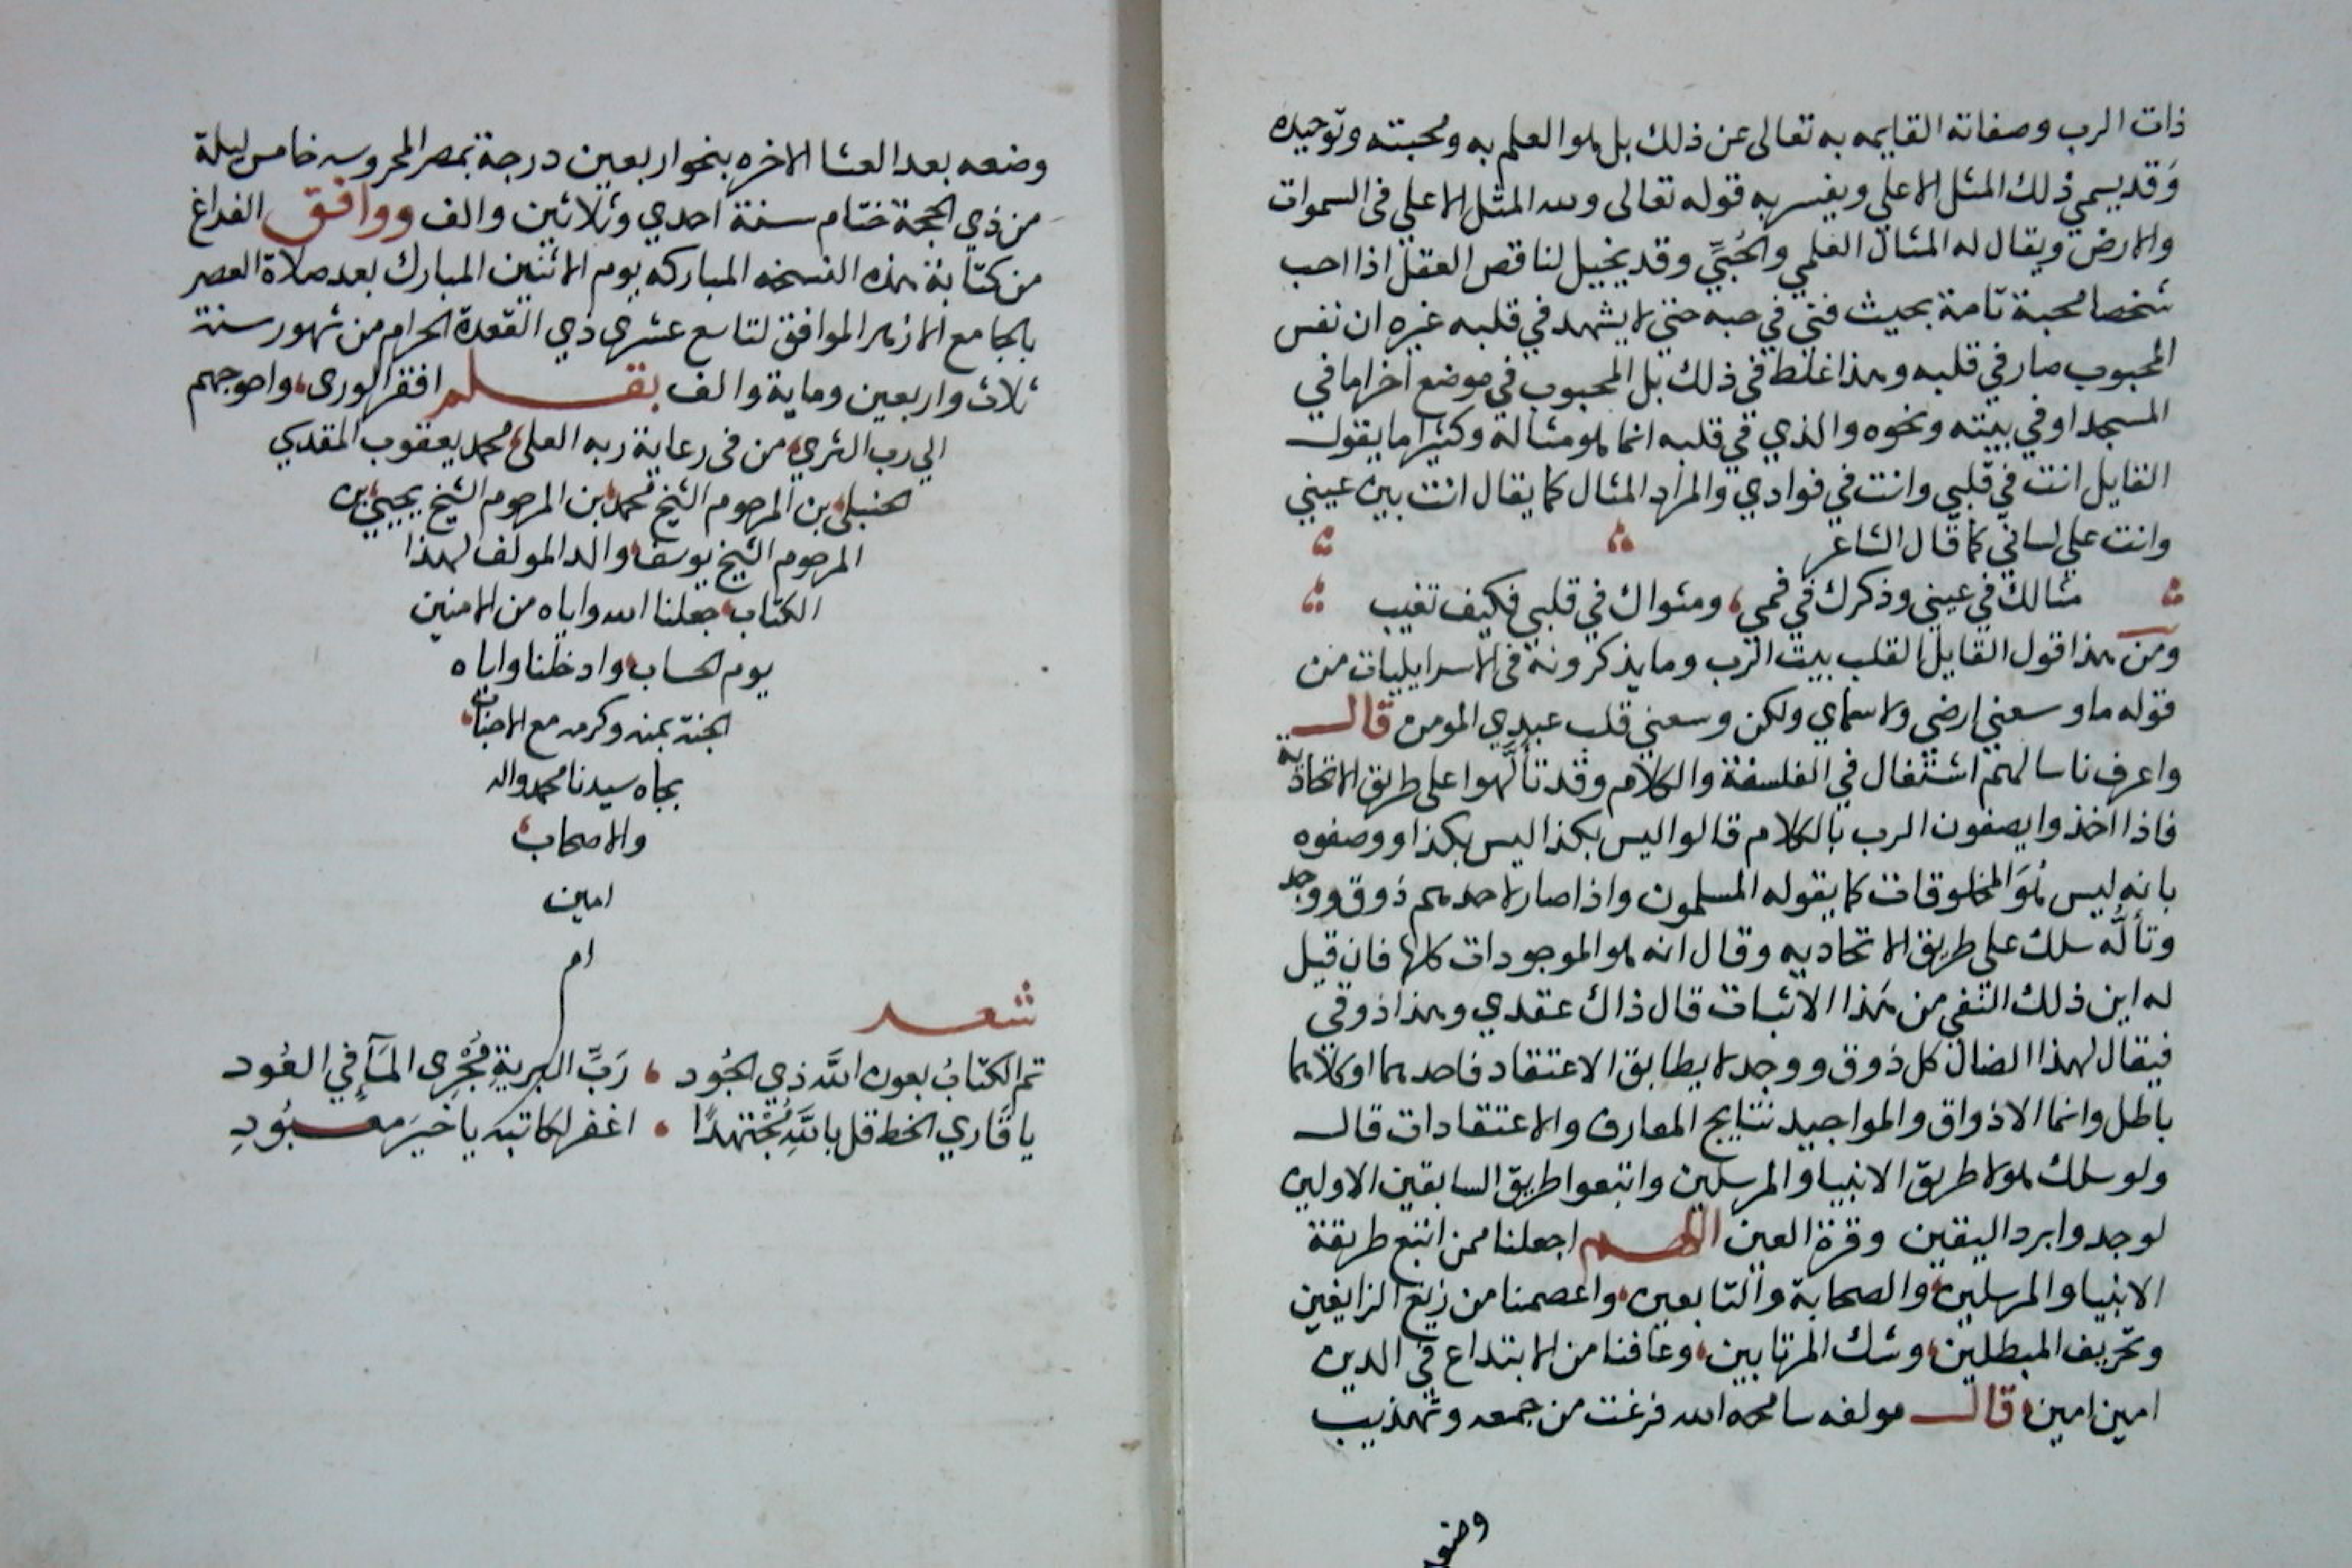 ذات الرب وصفاته القايمه به تعالى عن ذلك بل هو العلم به ومحبته وتوحيده
وَقد يسمي ذلك المثل الاعلي ويفسر به قوله تعالى ولله المثل الاعلي في السموات
والارض ويقال له المثال العلمي والحُبِّي وقد يخيل لناقص العقل اذا احب
شخصا محبة تامة بحيث فني في حبه حتي لا يشهد في قلبه غيره ان نفس
المحبوب صار في قلبه وهذا غلط في ذلك بل المحبوب في موضع اخر اما في
المسجد او في بيته ونحوه والذي في قلبه انما هو مثاله وكثيرا ما يقول
القايل انت في قلبي وانت في فوادي والمراد المثال كما يقال انت بين عيني
وانت علي لساني كما قال الشاعر
مثالك في عيني وذكرك في فمي ، ومثواك في قلبي فكيف تغيب
ومن هذا قول القايل القلب بيت الرب وما يذكرونه في الاسرايليات من
قوله ما وسعني ارضي ولا سماي ولكن وسعني قلب عبدي المومن قال
واعرف ناسا لهم اشتغال في الفلسفة والكلام وقد تألَّهوا على طريق الاتحادية
فاذا اخذوا يصفون الرب بالكلام قالوا ليس بكذا ليس بكذا ووصفوه
بانه ليس هُوَ المخلوقات كما يقوله المسلمون واذا صار لاحدهم ذوق ووجد
وتألَّه سلك علي طريق الاتحاديه وقال انه هو الموجودات كلها فان قيل
له اين ذلك النفي من هَذا الاثبات قال ذاك عقدي وهذا ذوقي
فيقال لهذا الضال كل ذوق ووجد لا يطابق الاعتقاد فاحدهما او كلاهما
باطل وانما الاذواق والمواجيد نتايج المعارف والاعتقادات قال
ولو سلك هولا طريق الانبيا والمرسلين واتبعوا طريق السابقين الاولين
لوجدوا برد اليقين وقرة العين اللهم اجعلنا ممن اتبع طريقة
الانبيا والمرسلين، والصحابة والتابعين، واعصمنا من زيغ الزايغين
وتحريف المبطلين، وشك المرتابين، وعافنا من الابتداع في الدين
امين امين، قال مولفه سامحه الله فرغت من جمعه وتهذيب
وضعه
وضعه بعد العشا الاخره بنحو اربعين درجة بمصر المحروسه خامس ليلة
من ذي الحجة ختام سنة احدي وثلاثين والف ووافق الفراغ
من كتابة هذه النسخه المباركه يوم الاثنين المبارك بعد صلاة العصر
بالجامع الازهر الموافق لتاسع عشري ذي القعدة الحرام من شهور سنة
ثلاث واربعين وماية والف بقلم افقر الورى، واحوجهم
الي رب الثري، من في رعاية ربه العلى، محمد يعقوب المقدسي
الحنبلى، بن المرحوم الشيخ محمد، بن المرحوم الشيخ يحيي، بن
المرحوم الشيخ يوسف، والد المولف لهذا
الكتاب، جعلنا الله واياه من الامنين
يوم الحساب، وادخلنا واياه
الجنة بمنه وكرمه مع الاحباب،
بجاه سيدنا محمد واله
والاصحاب،
امين
ام
شعر
تم الكتابُ بعون اللَّه ذي الجُود ، رَبِّ البرية مُجْرِى المَآءِ في العُود
يا قَاري الخط قل باللَّهِ مُجْتهدًا ، اغفر لكاتبه يا خيرَ معبُودِ